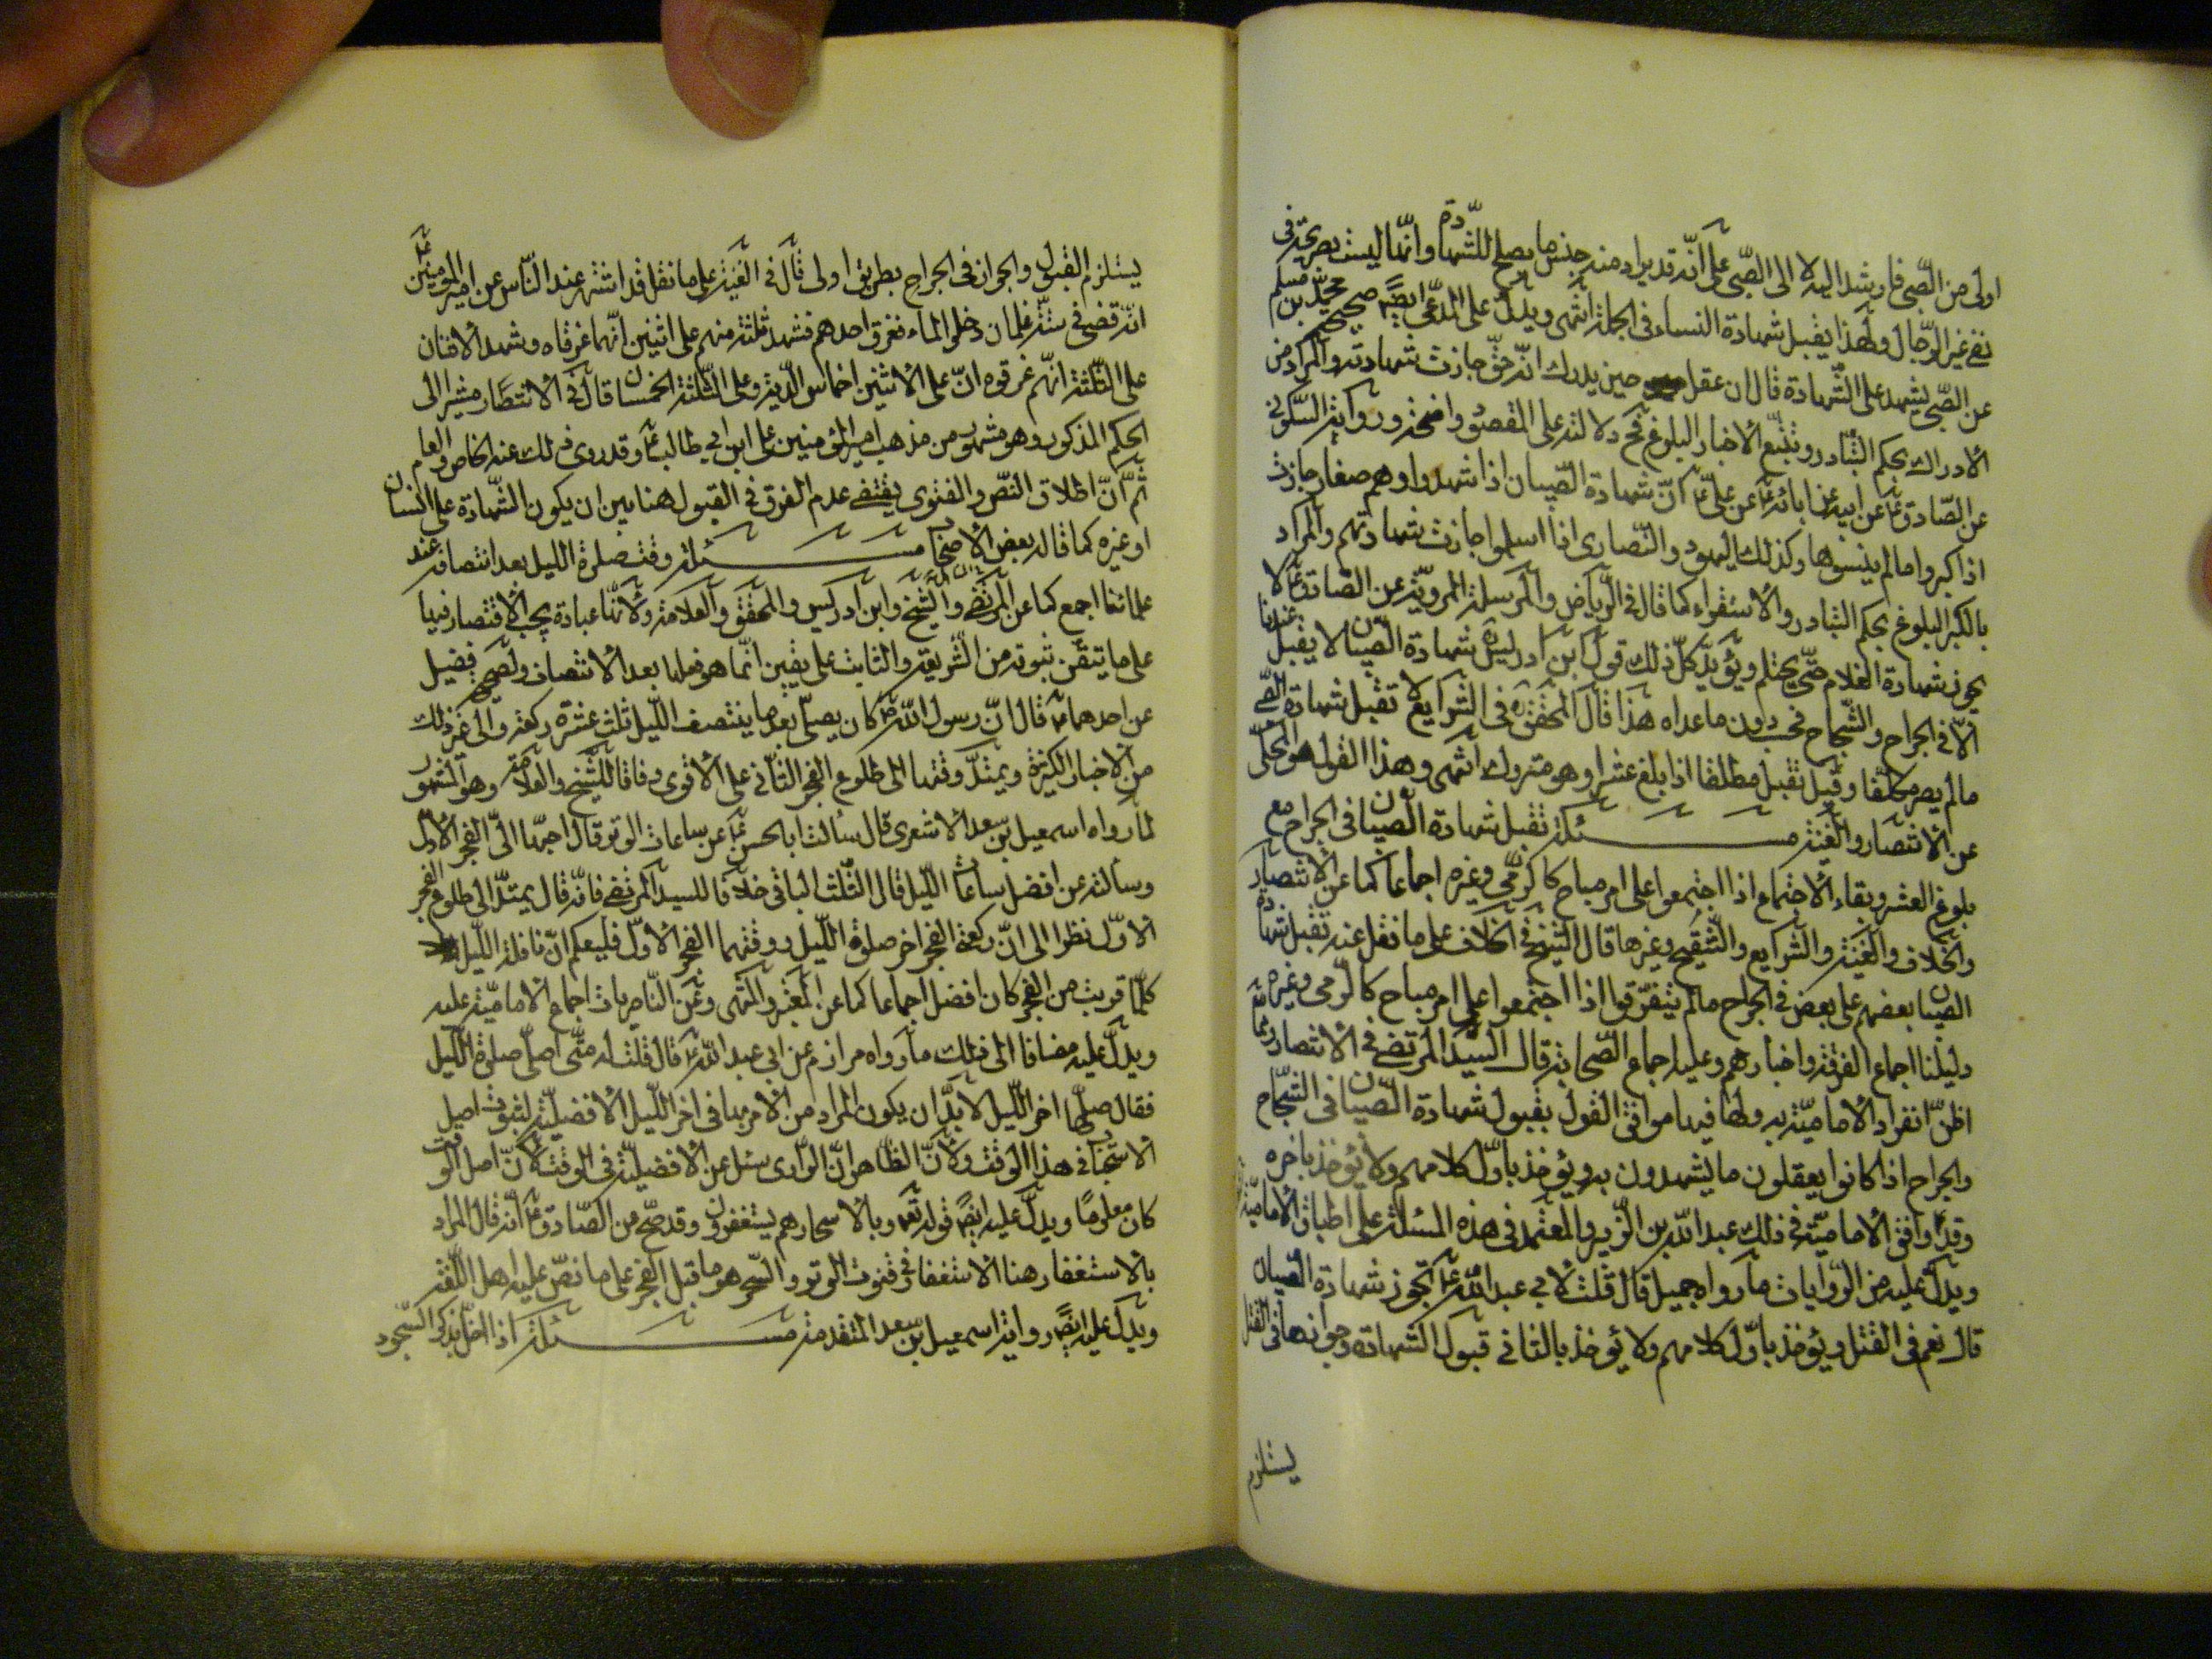 اولى من الصّبى فارشد اليه لا الى الصّبى على انّه قد يراد منه جنس ما يصلح للشهادة وانّها ليست بصريحة فى
نفى غير الرّجال ولهذا يقبل شهادة النساء فى الجملة انتهى ويدلّ على المدّعى ايضًا صحيحة محمّد بن مسلم
عن الصّبى يشهد على الشّهادة قال ان عقله حين يدرك انّه حقّ جازت شهادته والمراد من
الادراك بحكم التّبادر وتتبّع الاخبار البلوغ فح دلالته على المقصود واضحة ورواية السّكونى
عن الصّادق ع عن ابيه عن ابائه ع عن علىّ ع انّ شهادة الصّبيان اذا شهدوا وهم صغار جازت
اذا كبروا ما لم ينسوها وكذلك اليهود والنّصارى اذا اسلموا جازت شهادتهم والمراد
بالكبر البلوغ بحكم التبادر والاستقراء كما قال فى الرّياض والمرسلة المرويّة عن الصّادق ع لا
يجوز شهادة الغلام حتّى يحتلم ويؤيّد كلّ ذلك قول ابن ادريس شهادة الصّبيان لا يقبل عندنا
الّا فى الجراح والشّجاح فحسب دون ما عداه هذا قال المحقّق فى الشّرايع لا تقبل شهادة الصّبى
ما لم يصر مكلّفا وقيل تقبل مطلقا اذا بلغ عشرا وهو متروك انتهى وهذا القول هو المحكىّ
عن الانتصار والغنية مسئلة تقبل شهادة الصّبيان فى الجراح مع
بلوغ العشر وبقاء الاجتماع اذا اجتمعوا على امر مباح كالرّمى وغيره اجماعا كما عن الانتصار
والخلاف والغنية والشرايع والتّنقيح وغيرها قال الشّيخ فى الخلاف على ما نقل عنه تقبل شهادة
الصّبيان بعضهم على بعض فى الجراح ما لم يتفرّقوا اذا اجتمعوا على امر مباح كالرّمى وغيره ثمّ
دليلنا اجماع الفرقة واخبارهم وعليه اجماع الصّحابة قال السّيّد المرتضى فى الانتصار وممّا
اظنّ انفراد الاماميّة به ولها فيها موافق القول بقبول شهادة الصّبيان فى الشّجاح
والجراح اذا كانوا يعقلون ما يشهدون به ويؤخذ باوّل كلامهم ولا يؤخذ باخره
وقد وافق الاماميّة فى ذلك عبد اللّه بن الزّبير والمعتمد فى هذه المسئلة على اطباق الاماميّة
ويدلّ عليه من الرّوايات ما رواه جميل قال قلت لابى عبد اللّه ع اتجوز شهادة الصّبيان
قال نعم فى القتل ويؤخذ باوّل كلامهم ولا يؤخذ بالثانى قبول الشّهادة وجوازها فى القتل
يستلزم
يستلزم القبول والجواز فى الجراح بطريق اولى قال فى الغنية على ما نقل قد اشتهر عند النّاس عن امير المؤمنين ع
انّه قضى فى ستّة غلمان دخلوا الماء فغرق احدهم فشهد ثلثة منهم على اثنين انّهما غرقاه وشهد الاثنان
على الثّلثة انّهم غرقوه انّ على الاثنين اخماس الدّية وعلى الثّلثة الخمسان قال فى الانتصار مشيرا الى
الحكم المذكور وهو مشهور من مذهب امير المؤمنين على ابن ابى طالب ع وقد روى ذلك عنه الخاص والعام
ثمّ انّ اطلاق النصّ والفتوى يقتضى عدم الفرق فى القبول هنا بين ان يكون الشّهادة على انسان
او غيره كما قاله بعض الاصحاب مسئلة وقت صلوة الليل بعد انتصافه عند
علمائنا اجمع كما عن المرتضى والشّيخ وابن ادريس والمحقّق والعلامة ولانّها عبادة يجب الاقتصار فيها
على ما تيقّن ثبوته من الشّريعة والثابت على يقين انّما هو فعلها بعد الانتصاف ولصحيح فضيل
عن احدهما ع قال انّ رسول اللّه ص كان يصلّى بعد ما ينتصف اللّيل ثلث عشرة ركعة والى غير ذلك
من الاخبار الكثيرة ويمتدّ وقتها الى طلوع الفجر الثّانى على الاقوى وفاقا للشّيخ والعلامة وهو المشهور
لما رواه اسمعيل بن سعد الاشعرى قال سألت ابا الحسن ع عن ساعات الوتر وقال احبّها الىّ الفجر الاوّل
وسألته عن افضل ساعات اللّيل قال الثّلث الباقى خلافا للسيد المرتضى فانّه قال يمتدّ الى طلوع الفجر
الاوّل نظرا الى انّ ركعتى الفجر اخر صلوة اللّيل ووقتهما الفجر الاوّل فليعلم انّ نافلة اللّيل
كلّما قربت من الفجر كان افضل اجماعا كما عن المعتبر والمنتهى وعن النّاصريات اجماع الاماميّة عليه
ويدلّ عليه مضافا الى ذلك ما رواه مرازم عن ابى عبد اللّه ع قال قلت له متى اصلّى صلوة اللّيل
فقال صلّها اخر اللّيل لا بدّ ان يكون المراد من الامر بها فى اخر اللّيل الافضليّة لثبوت اصل
الاستحباب فى هذا الوقت ولانّ الظّاهر انّ الرّاوى سئل عن الافضليّة فى الوقت لانّ اصل الوقت
كان معلومًا ويدلّ عليه ايضًا قوله تعالى وبالاسحار هم يستغفرون وقد صحّ من الصّادق ع انّه قال المراد
بالاستغفار هنا الاستغفار فى قنوت الوتر والسّحر هو ما قبل الفجر على ما نصّ عليه اهل اللّغة
ويدلّ عليه ايضًا رواية اسمعيل بن سعد المتقدمة مسئلة اذا اخلّ بذكر السّجود